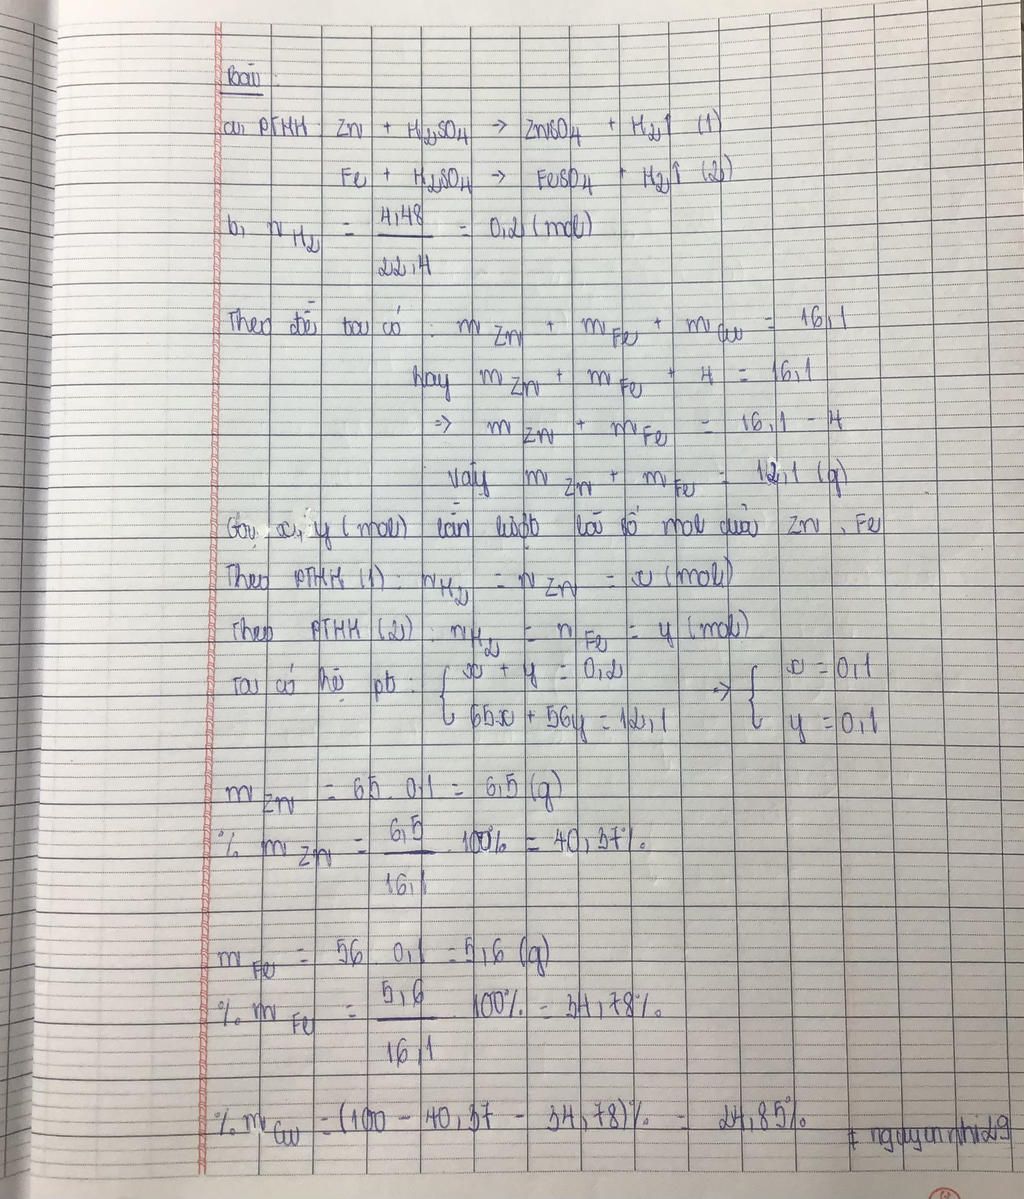 Bài:
a, PTHH: Zn + H2SO4 → ZnSO4 + H2↑ (1)
Fe + H2SO4 → FeSO4 + H2↑ (2)
b, nH2 = 4,48/22,4 = 0,2 (mol)
Theo đề ta có: mZn + mFe + mCu = 16,1
hay mZn + mFe + 4 = 16,1
=> mZn + mFe = 16,1 - 4
Vậy mZn + mFe = 12,1 (g)
Gọi x, y (mol) lần lượt là số mol của Zn, Fe
Theo PTHH (1): nH2 = nZn = x (mol)
Theo PTHH (2): nH2 = nFe = y (mol)
Ta có hệ pt: { x + y = 0,2 => { x = 0,1
65x + 56y = 12,1 y = 0,1
mZn = 65 . 0,1 = 6,5 (g)
% mZn = 6,5/16,1 . 100% = 40,37%.
mFe = 56 . 0,1 = 5,6 (g)
% mFe = 5,6/16,1 . 100% = 34,78%.
% mCu = (100 - 40,37 - 34,78)% = 24,85%.
# nguyennhi29